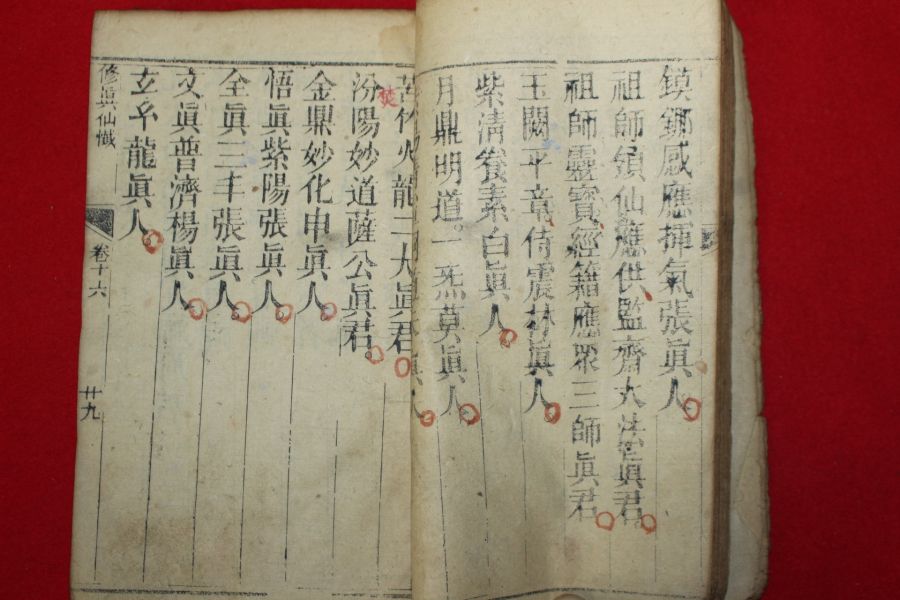 鏌鎁感應捕氣張眞人
祖師領仙應供監齊大法眞君
祖師靈寶經籍應眾三師眞君
玉闕平章侍震林眞人
紫清養素白眞人
月鼎明道一炁莫眞人
眞人
苦竹火龍二大眞君
焚
汾陽妙道薩公眞君
金鼎妙化申眞人
悟眞紫陽張眞人
全眞三丰張眞人
文眞普濟楊眞人
玄乎龍眞人
修眞仙懺
卷十六
廿九